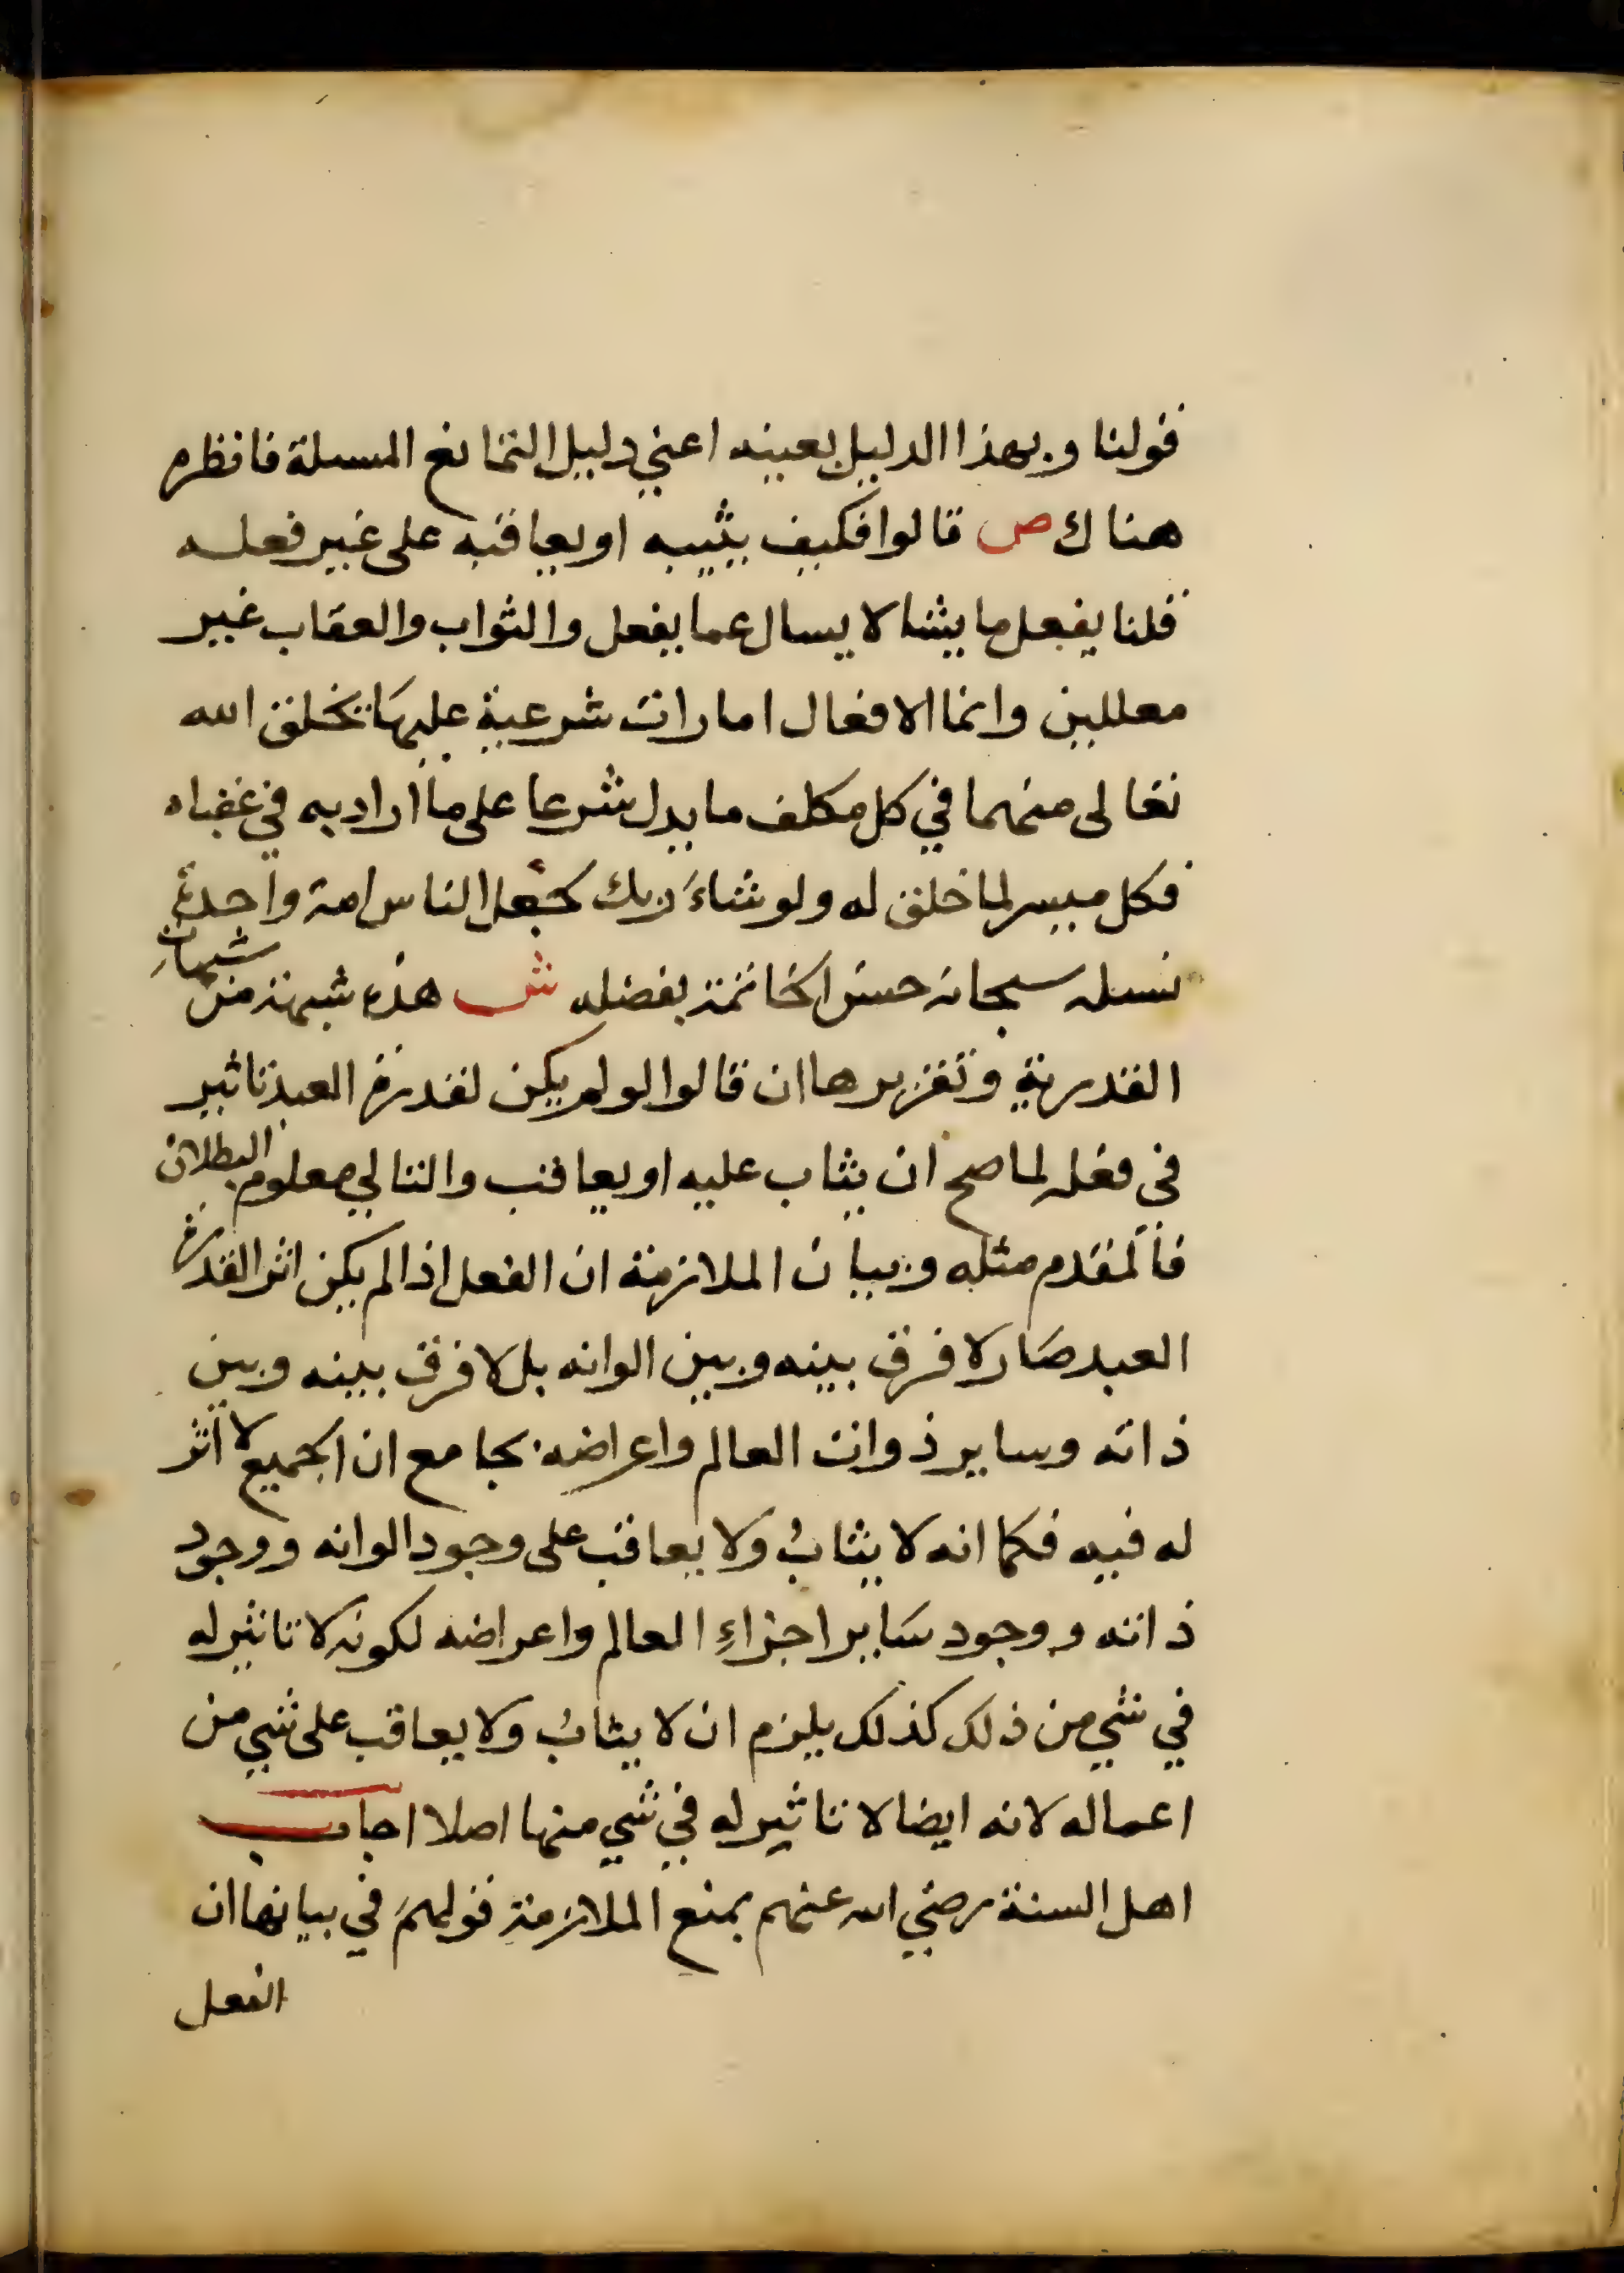 قولنا وبهذا الدليل بعينه اعني دليل التمانع المسئلة فانظره
هناك ص قالوا فكيف يثيبه او يعاقبه على غير فعله
قلنا يفعل ما يشا لا يسال عما يفعل والثواب والعقاب غير
معللين وانما الافعال امارات شرعية عليهما يخلق الله
تعالى منهما في كل مكلف ما يدل شرعا على ما اراد به في عقباه
فكل ميسر لما خلق له ولو شاءَ ربك لجعل الناس امة واحدة
نسله سبحانه حسن الخاتمة بفضله ش هذه شبهة من شبهات
القدرية وتقريرها ان قالوا لو لم يكن لقدرة العبد تاثير
في فعله لما صح ان يثاب عليه او يعاقب والتالي معلوم البطلان
فالمقدم مثله وبيان الملازمة ان الفعل اذا لم يكن اثر القدرة
العبد صار لا فرق بينه وبين الوانه بل لا فرق بينه وبين
ذاته وساير ذوات العالم واعراضه بجامع ان الجميع لا اثر
له فيه فكما انه لا يثابُ ولا يعاقب على وجود الوانه ووجود
ذاته ووجود سَاير اجزاءِ العالم واعراضه لكونه لا تاثير له
في شي من ذلك كذلك يلزم ان لا يثابُ ولا يعاقب على شي من
اعماله لانه ايضا لا تاثير له في شي منها اصلا اجاب
اهل السنة رضي الله عنهم بمنع الملازمة قولهمَ في بيانها ان
الفعل